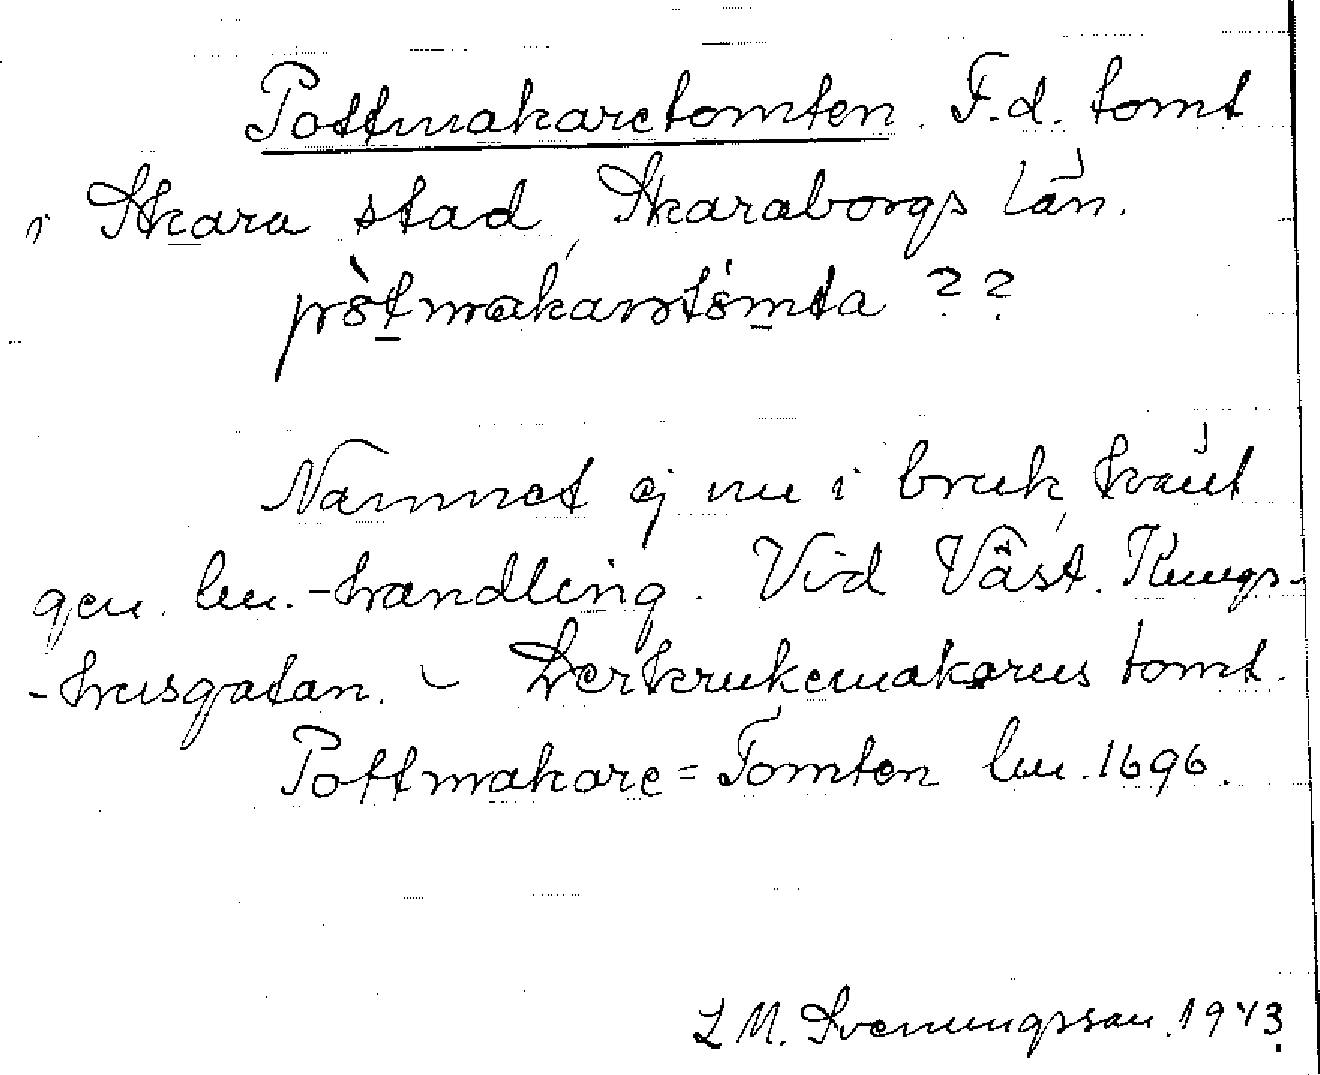 Pottmakaretomten. F.d. tomt
i Skara stad, Skaraborgs län.
Namnet ej nu i bruk, känt
gen. lm.-handling. Vid Väst. Kungs-
-husgatan. – Lerkrukemakarens tomt.
Pottmakare=Tomten lm. 1696.
L M. Svenungsson. 1943.